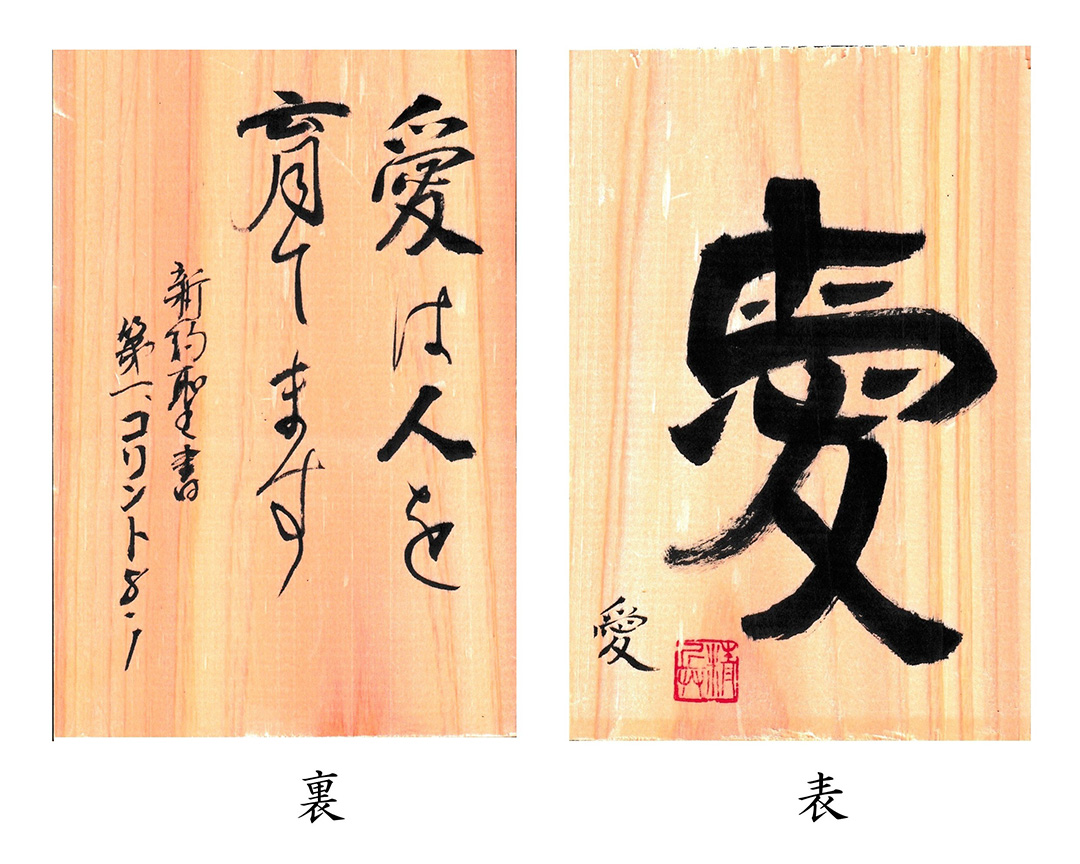 愛
愛
表
愛は人を
育てます
新約聖書
第一、コリント8・1
裏